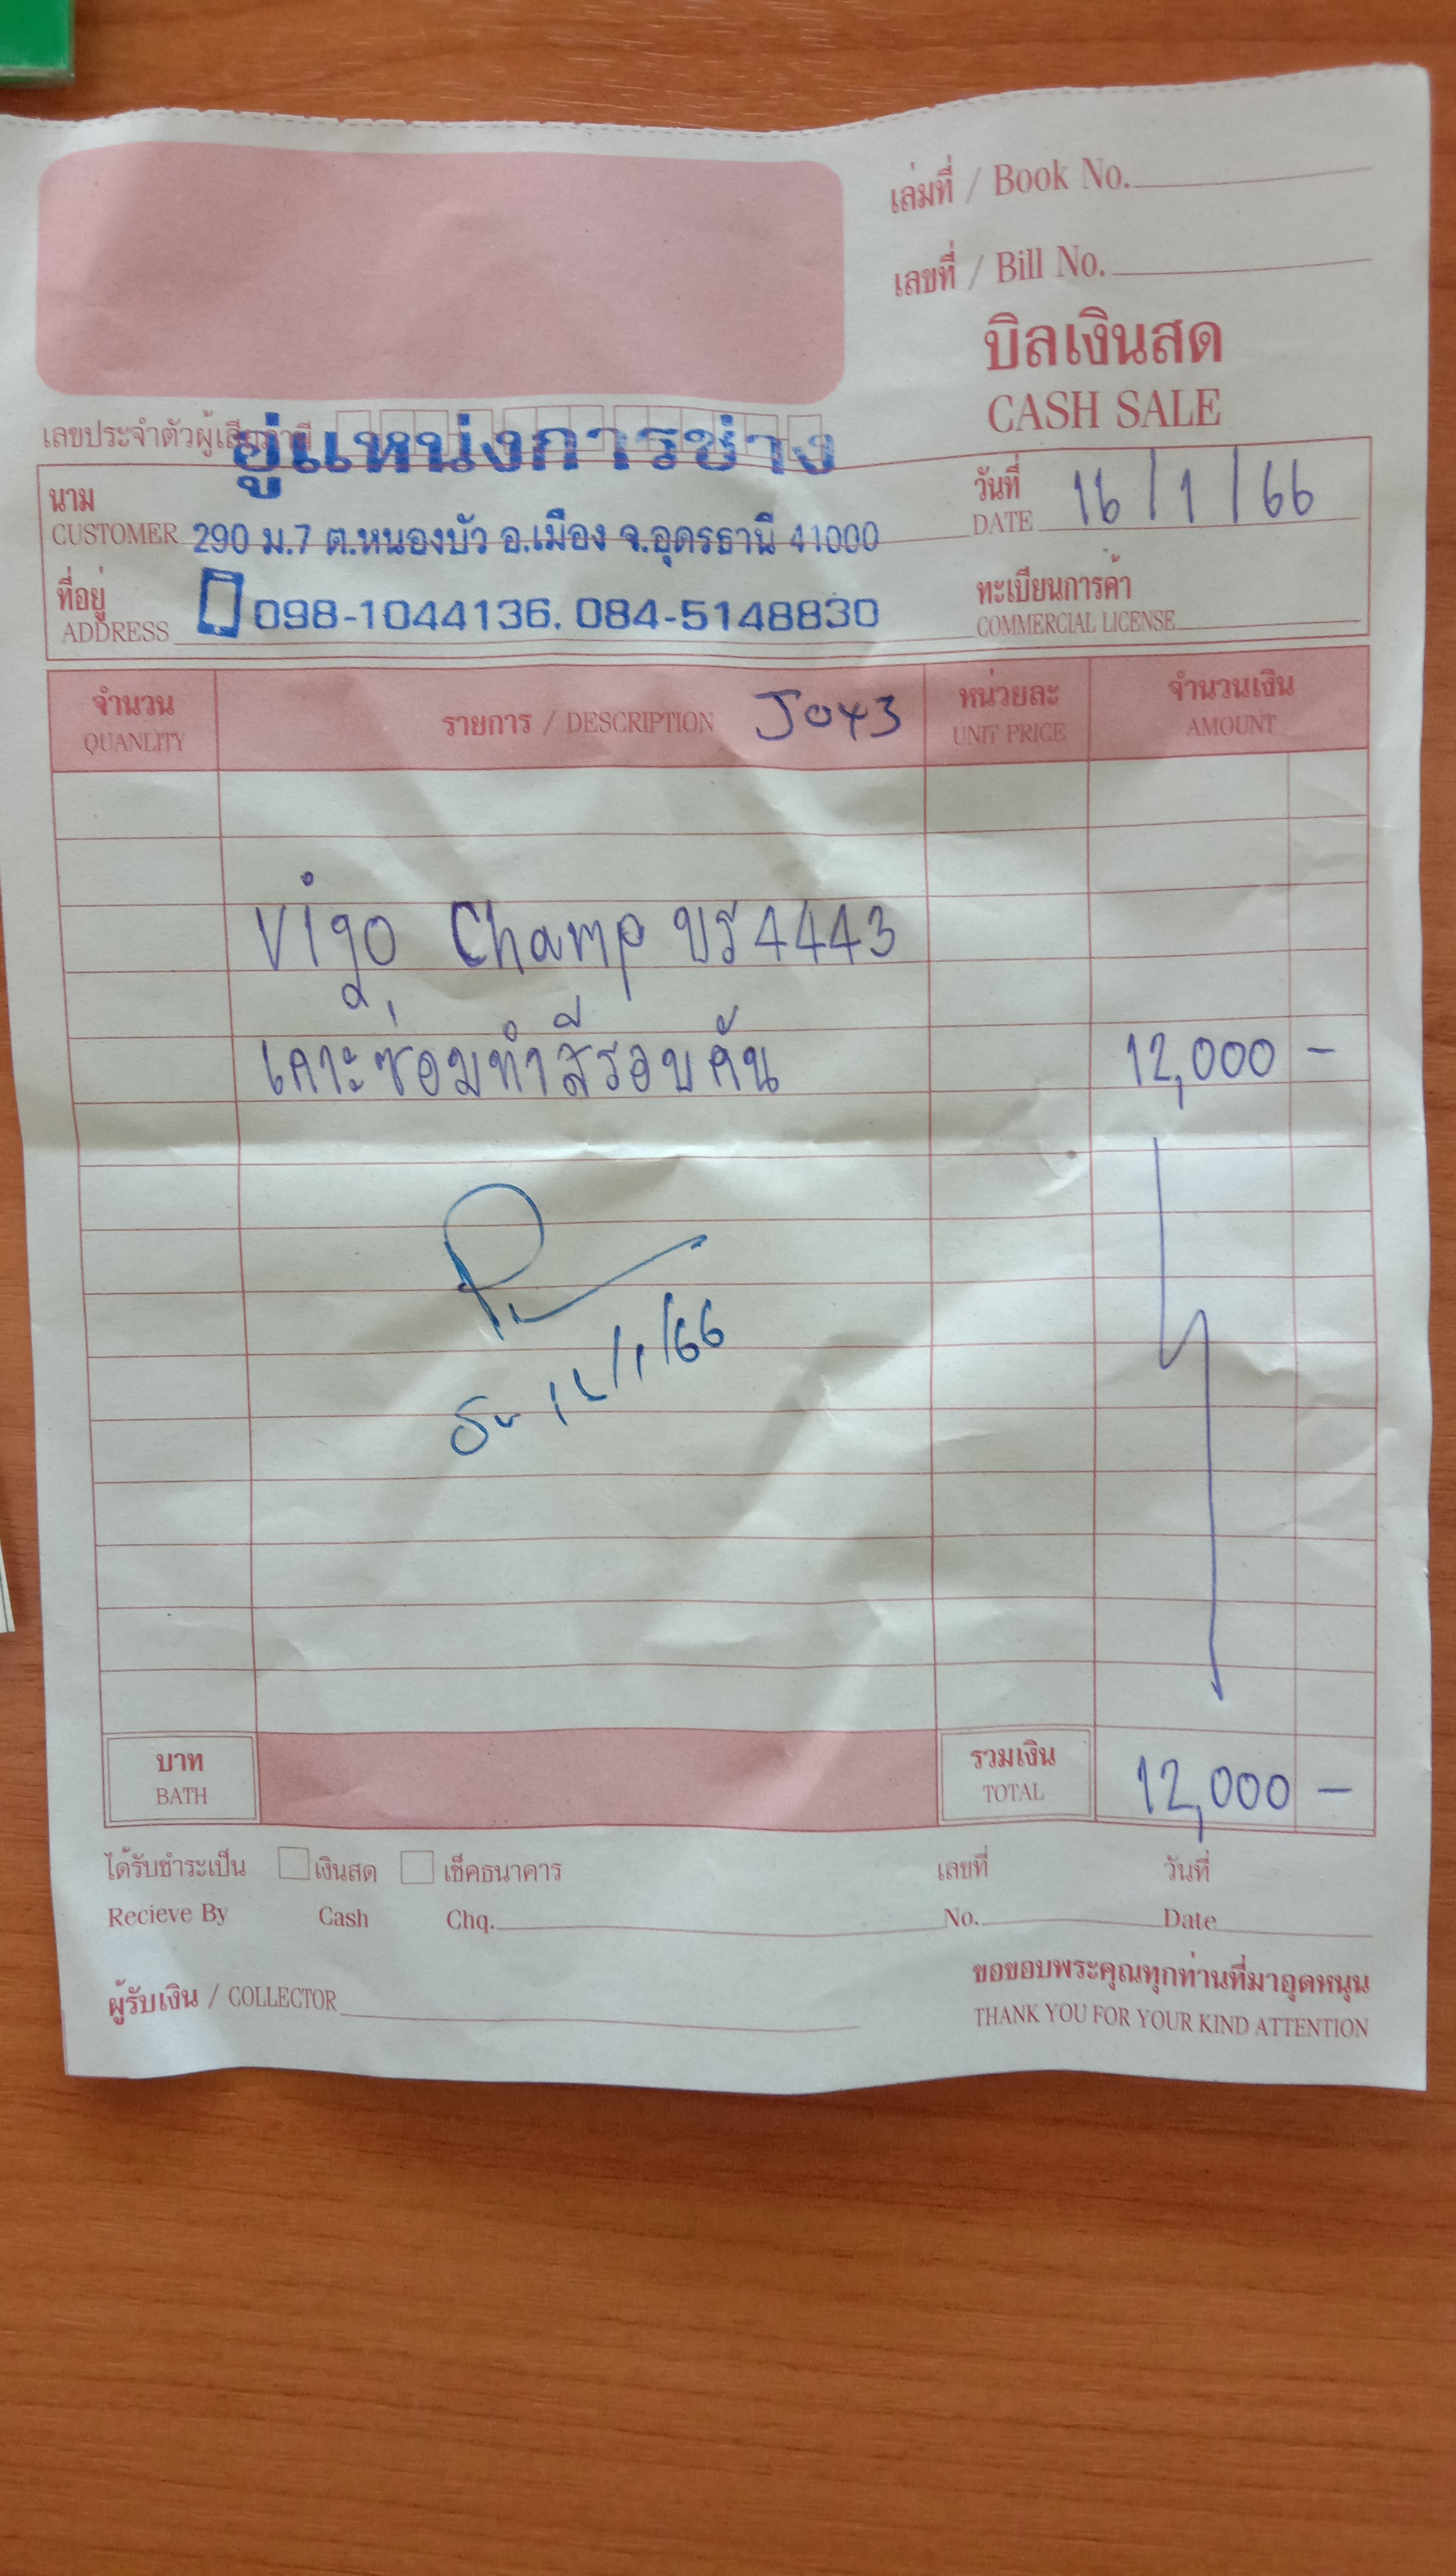 เล่มที่ / Book No.
เลขที่ / Bill No.
บิลเงินสด
CASH SALE
เลขประจำตัวผู้เสียภาษี
อู่แหน่งการช่าง
นาม
CUSTOMER 290 ม.7 ต.หนองบัว อ.เมือง จ.อุดรธานี 41000
วันที่
DATE 16/1/66
ที่อยู่
ADDRESS 098-1044136, 084-5148830
ทะเบียนการค้า
COMMERCIAL LICENSE
จำนวน
QUANLITY
รายการ / DESCRIPTION J043
หน่วยละ
UNIT PRICE
จำนวนเงิน
AMOUNT
Vigo Champ บร 4443
เคาะซ่อมทำสีรอบคัน 12,000 -
บาท
BATH
รวมเงิน
TOTAL
12,000 -
ได้รับชำระเป็น เงินสด เช็คธนาคาร เลขที่ วันที่
Recieve By Cash Chq. No. Date
ผู้รับเงิน / COLLECTOR
ขอขอบพระคุณทุกท่านที่มาอุดหนุน
THANK YOU FOR YOUR KIND ATTENTION